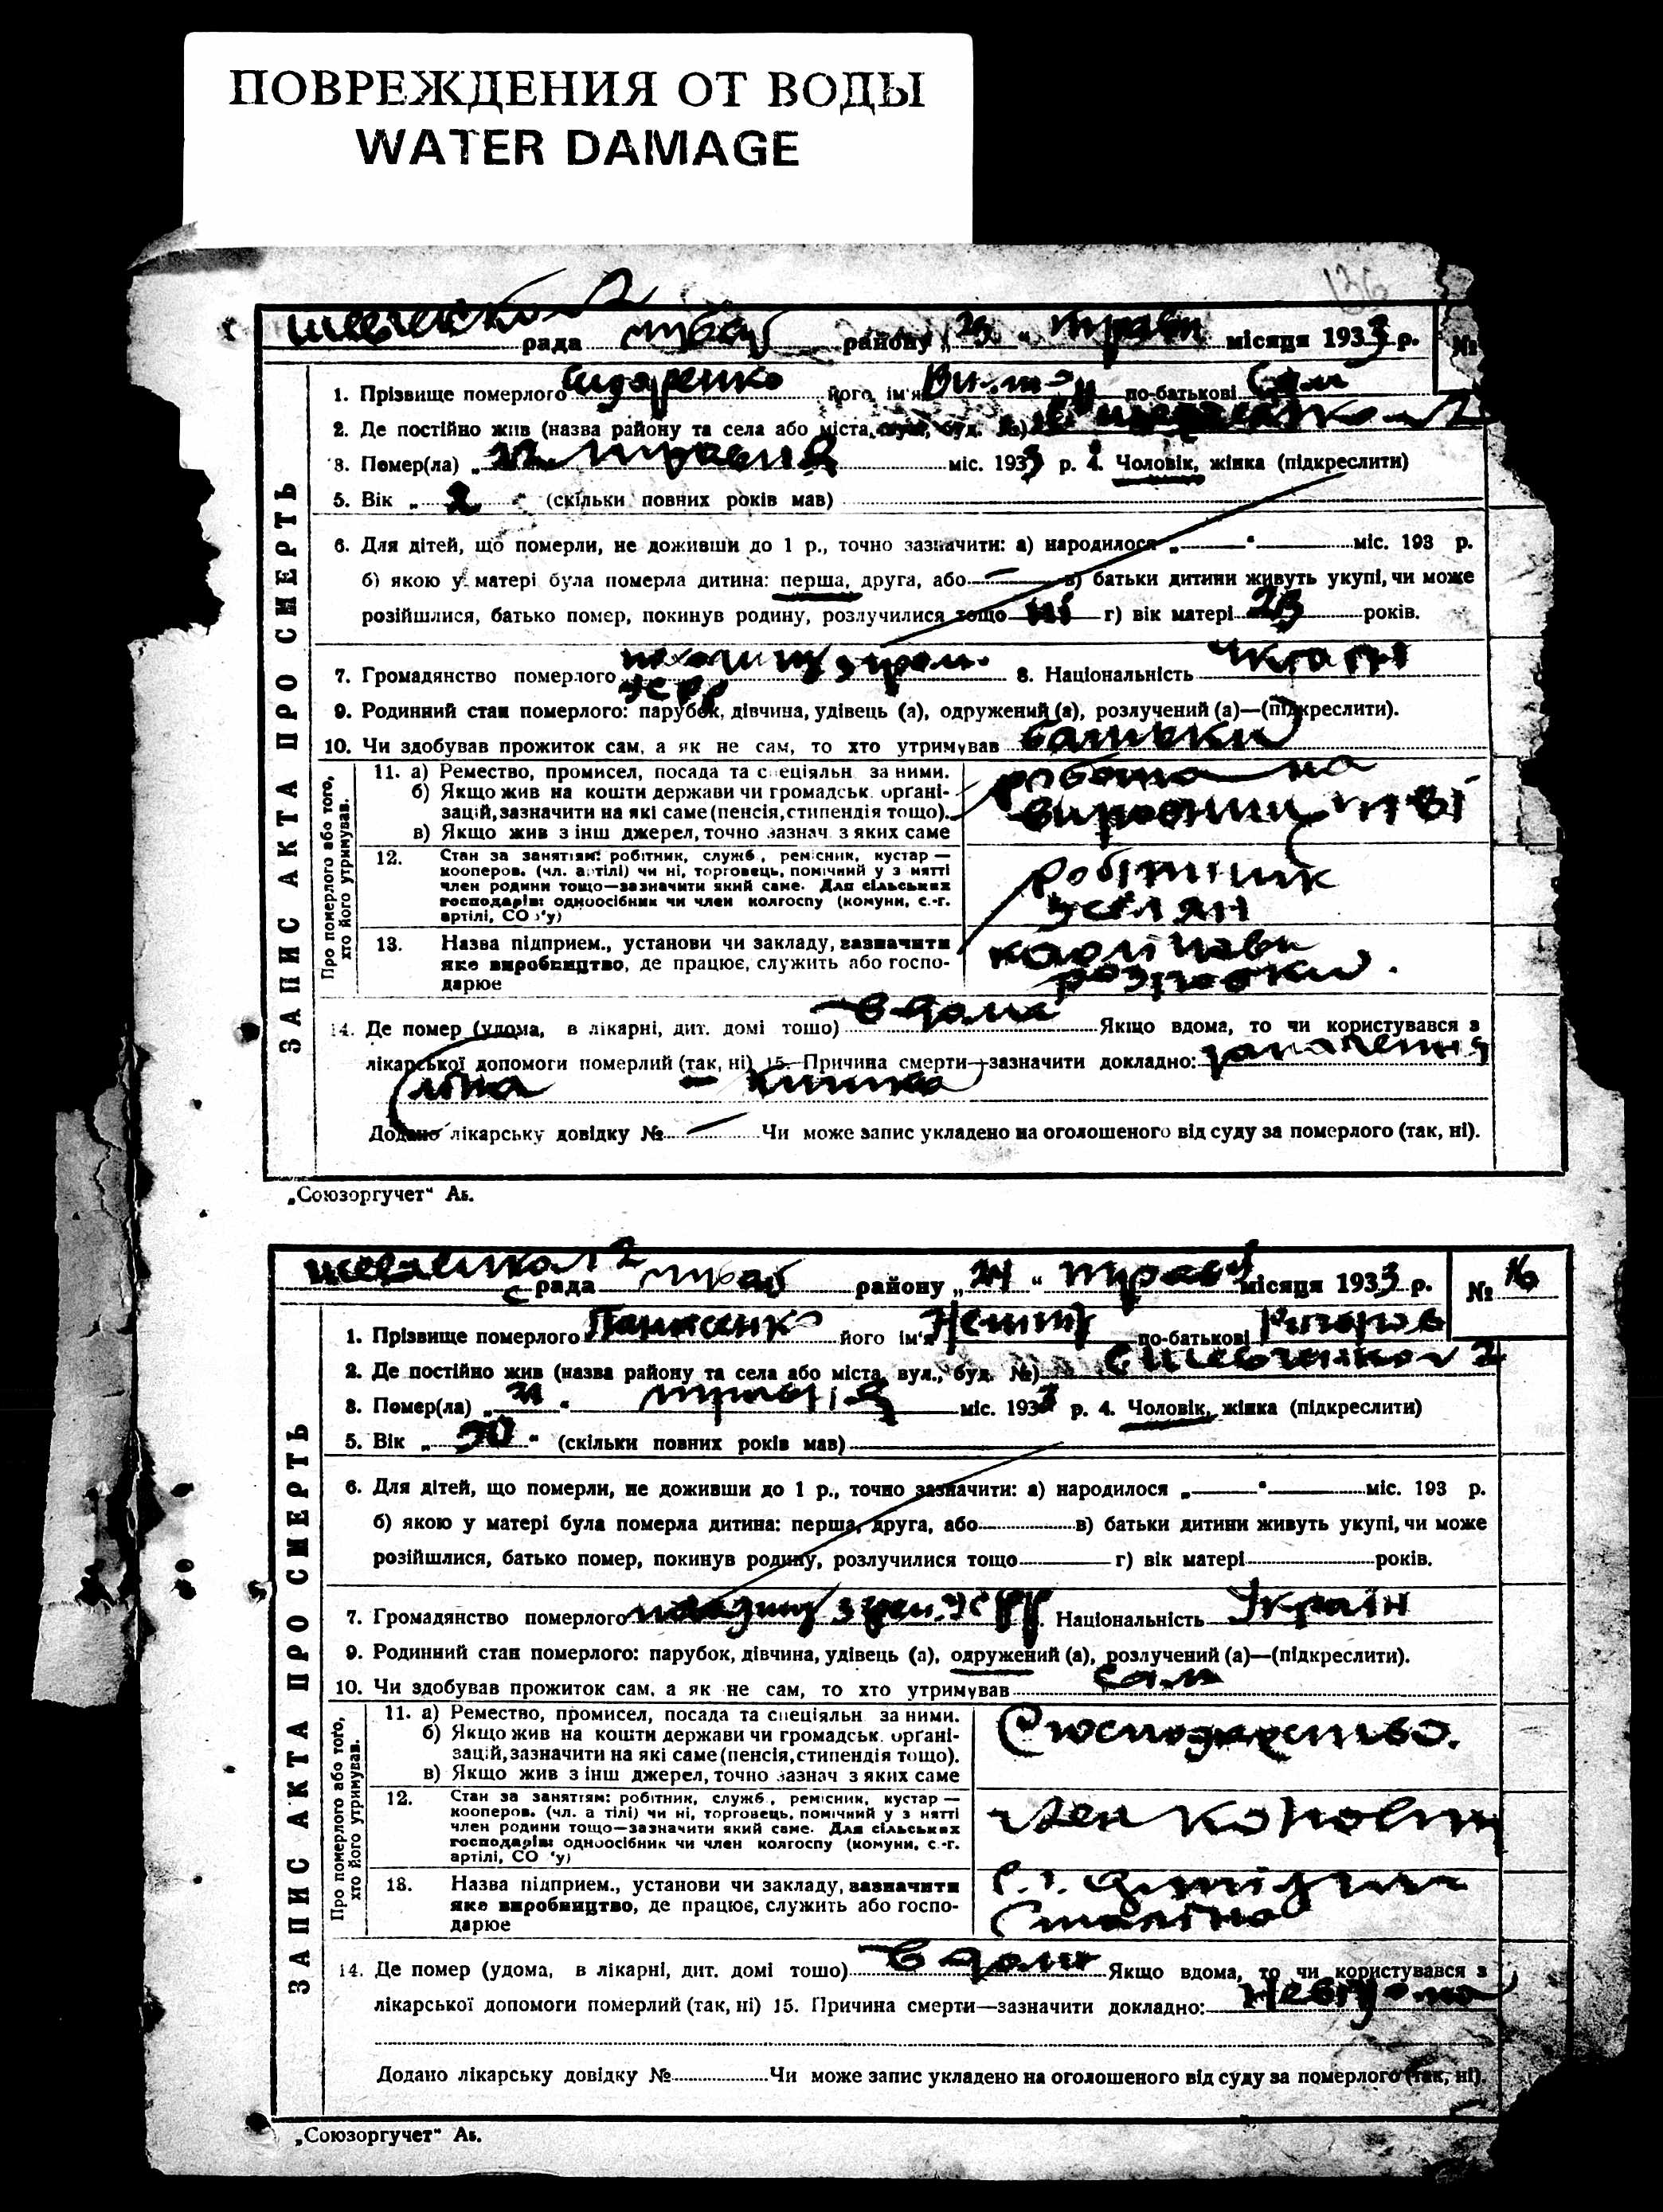 ПОВРЕЖДЕНИЯ ОТ ВОДЫ
WATER DAMAGE
136
рада району „23 “ місяця 1933 р. №
ЗАПИС АКТА ПРО СМЕРТЬ
1. Прізвище померлого Сидоренко його ім'я по-батькові
2. Де постійно жив (назва району та села або міста, вул., буд. №)
3. Помер(ла) „ травня міс. 1933 р. 4. Чоловік, жінка (підкреслити)
5. Вік „ 2 “ (скільки повних років мав)
6. Для дітей, що померли, не доживши до 1 р., точно зазначити: а) народилося „ “ міс. 193 р.
б) якою у матері була померла дитина: перша, друга, або в) батьки дитини живуть укупі, чи може
розійшлися, батько помер, покинув родину, розлучилися тощо ні г) вік матері 23 років.
7. Громадянство померлого 8. Національність
УСРР
9. Родинний стан померлого: парубок, дівчина, удівець (а), одружений (а), розлучений (а)—(підкреслити).
10. Чи здобував прожиток сам, а як не сам, то хто утримував батьки
Про померлого або того, хто його утримував.
11. а) Ремество, промисел, посада та спеціяльн за ними.
б) Якщо жив на кошти держави чи громадськ. орґані-
зацій, зазначити на які саме (пенсія, стипендія тощо).
в) Якщо жив з інш джерел, точно зазнач. з яких саме
робота на
виробництві
12. Стан за занятям: робітник, служб., ремісник, кустар —
кооперов. (чл. артілі) чи ні, торговець, помічний у з нятті
член родини тощо—зазначити який саме. Для сільських
господарів: одноосібник чи член колгоспу (комуни, с.-г.
артілі, СО 'у)
робітник
з селян
13. Назва підприєм., установи чи закладу, зазначити
яке виробництво, де працює, служить або госпо-
дарює
14. Де помер (удома, в лікарні, дит. домі тощо) вдома Якщо вдома, то чи користувався з
лікарської допомоги померлий (так, ні) 15. Причина смерти—зазначити докладно: запалення
Додано лікарську довідку № Чи може запис укладено на оголошеного від суду за померлого (так, ні).
„Союзоргучет“ Ав.
рада району „24 “ місяця 1933 р. № 16
ЗАПИС АКТА ПРО СМЕРТЬ
1. Прізвище померлого його ім'я по-батькові
2. Де постійно жив (назва району та села або міста, вул., буд. №)
3. Помер(ла) „ “ травня міс. 1933 р. 4. Чоловік, жінка (підкреслити)
5. Вік „ “ (скільки повних років мав)
6. Для дітей, що померли, не доживши до 1 р., точно зазначити: а) народилося „ “ міс. 193 р.
б) якою у матері була померла дитина: перша, друга, або в) батьки дитини живуть укупі, чи може
розійшлися, батько помер, покинув родину, розлучилися тощо г) вік матері років.
7. Громадянство померлого УСРР. Національність Україн
9. Родинний стан померлого: парубок, дівчина, удівець (а), одружений (а), розлучений (а)—(підкреслити).
10. Чи здобував прожиток сам, а як не сам, то хто утримував сам
Про померлого або того, хто його утримував.
11. а) Ремество, промисел, посада та спеціяльн за ними.
б) Якщо жив на кошти держави чи громадськ. орґані-
зацій, зазначити на які саме (пенсія, стипендія тощо).
в) Якщо жив з інш джерел, точно зазнач з яких саме
12. Стан за занятям: робітник, служб., ремісник, кустар —
кооперов. (чл. а тілі) чи ні, торговець, помічний у з нятті
член родини тощо—зазначити який саме. Для сільських
господарів: одноосібник чи член колгоспу (комуни, с.-г.
артілі, СО 'у)
член
13. Назва підприєм., установи чи закладу, зазначити
яке виробництво, де працює, служить або госпо-
дарює
14. Де помер (удома, в лікарні, дит. домі тощо) вдома Якщо вдома, то чи користувався з
лікарської допомоги померлий (так, ні) 15. Причина смерти—зазначити докладно: невідома
Додано лікарську довідку № Чи може запис укладено на оголошеного від суду за померлого (так, ні).
„Союзоргучет“ Ав.